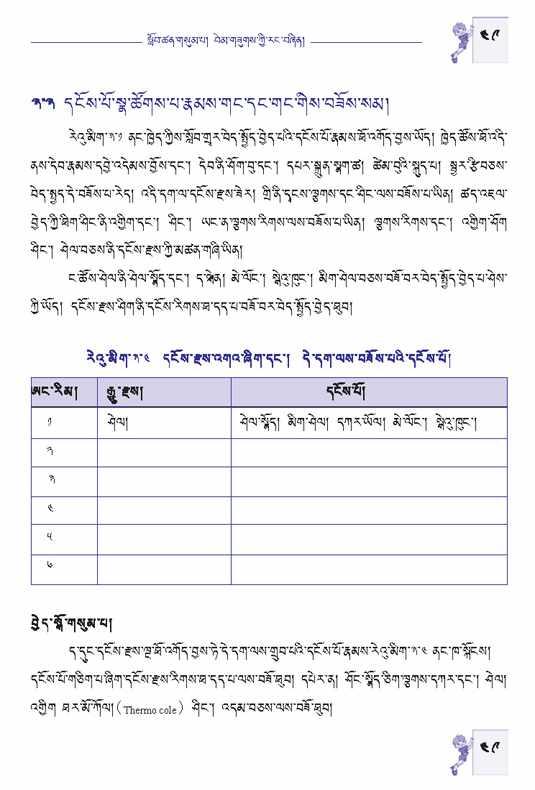 སློབ་ཚན་གསུམ་པ། བེམ་གཟུགས་ཀྱི་རང་བཞིན།
༤༩
༣.༣ དངོས་པོ་སྣ་ཚོགས་པ་རྣམས་གང་དང་གང་གིས་བཟོས་སམ།
རེའུ་མིག་༣.༡ ནང་ཁྱེད་ཀྱིས་སློབ་གྲྭར་བེད་སྤྱོད་བྱེད་པའི་དངོས་པོ་རྣམས་ཐོ་འགོད་བྱས་ཡོད། ཁྱེད་ཚོས་ཐོ་འདི་
ནས་དེབ་རྣམས་དབྱེ་འདེམས་བྱོས་དང་། དེབ་ནི་ཤོག་བུ་དང་། དཔར་སྐྲུན་སྣག་ཚ། ཚེམ་བུའི་སྐུད་པ། སྦྱར་རྩི་བཅས་
བེད་སྤྱད་དེ་བཟོས་པ་རེད། འདི་དག་ལ་དངོས་རྫས་ཟེར། གྲི་ནི་དྭངས་ལྕགས་དང་ཤིང་ལས་བཟོས་པ་ཡིན། ཚད་འཇལ་
བྱེད་ཀྱི་ཐིག་ཤིང་ནི་འགྱིག་དང་། ཤིང་། ཡང་ན་ལྕགས་རིགས་ལས་བཟོས་པ་ཡིན། ལྕགས་རིགས་དང་། འགྱིག་ཤོག
ཤིང་། ཤེལ་བཅས་ནི་དངོས་རྫས་ཀྱི་མཚན་གཞི་ཡིན།
ང་ཚོས་ཤེལ་ནི་ཤེལ་སྣོད་དང་། ད་རྐེན། མེ་ལོང་། སྒེའུ་ཁུང་། མིག་ཤེལ་བཅས་བཟོ་བར་བེད་སྤྱོད་བྱེད་པ་ཤེས་
ཀྱི་ཡོད། དངོས་རྫས་ཤིག་ནི་དངོས་རིགས་ཐ་དད་པ་བཟོ་བར་བེད་སྤྱོད་བྱེད་ཐུབ།
རེའུ་མིག་༣.༤ དངོས་རྫས་འགའ་ཞིག་དང་། དེ་དག་ལས་བཟོས་པའི་དངོས་པོ།
ཨང་རིམ། རྒྱུ་རྫས། དངོས་པོ།
༡ ཤེལ། ཤེལ་སྣོད། མིག་ཤེལ། དཀར་ཡོལ། མེ་ལོང་། སྒེའུ་ཁུང་།
༢
༣
༤
༥
༦
བྱེད་སྒོ་གསུམ་པ།
ད་དུང་དངོས་རྫས་ལྔ་ཐོ་འགོད་བྱས་ཏེ་དེ་དག་ལས་གྲུབ་པའི་དངོས་པོ་རྣམས་རེའུ་མིག་༣.༤ ནང་ཁ་སྐོངས།
དངོས་པོ་གཅིག་པ་ཞིག་དངོས་རྫས་རིགས་ཐ་དད་པ་ལས་བཟོ་ཐུབ། དཔེར་ན། ཤོང་སྣོད་ཅིག་ལྕགས་དཀར་དང་། ཤེལ།
འགྱིག ཐར་མོ་ཀོལ།(Thermo cole) ཤིང་། འདམ་བཅས་ལས་བཟོ་ཐུབ།
༤༩